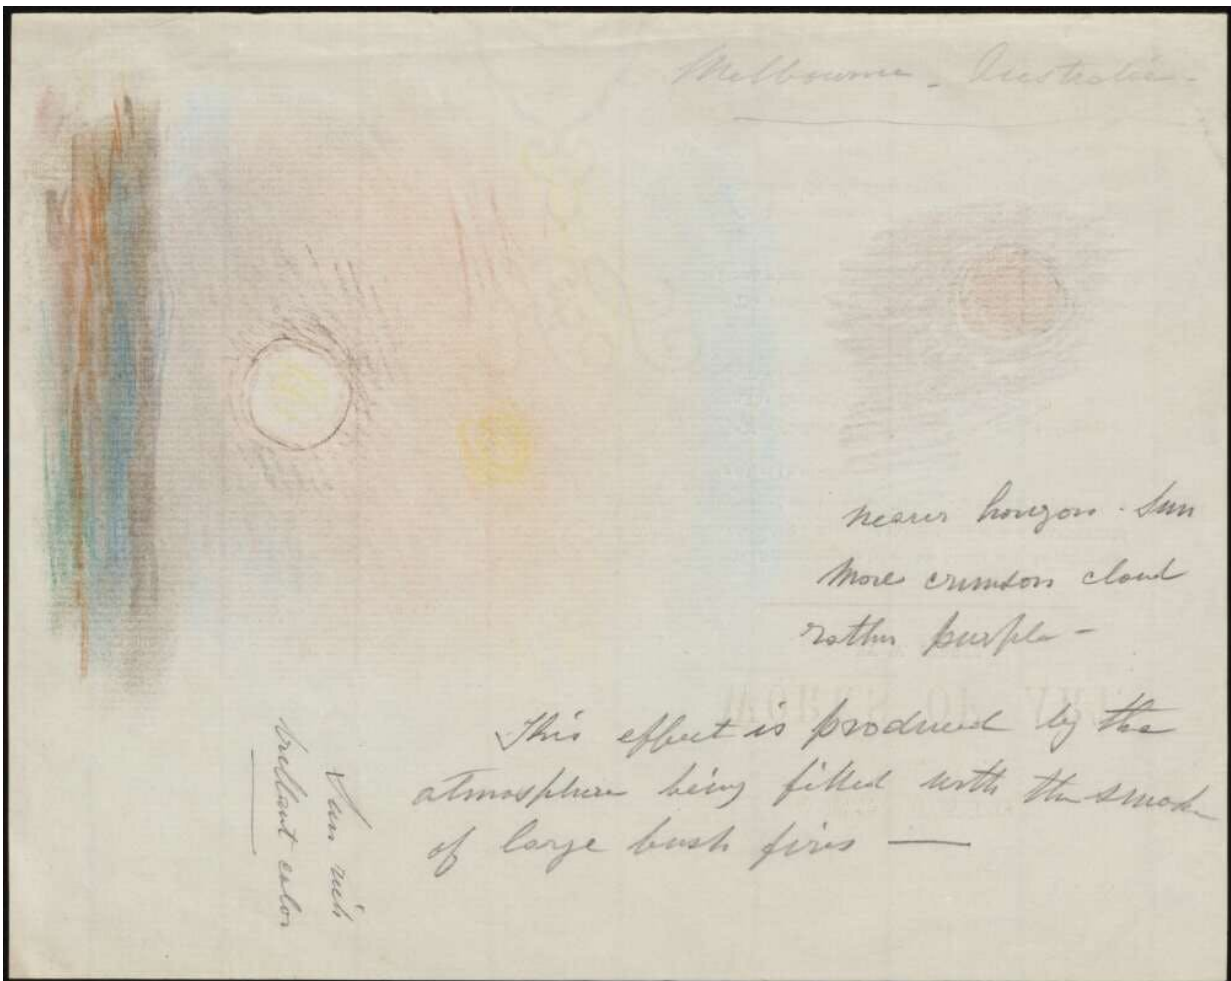 Melbourne - Australia -
nearer horizon. Sun
more crimson cloud
rather purple -
This effect is produced by the
atmosphere being filled with the smoke
of large bush fires —
Sun rich
brilliant color